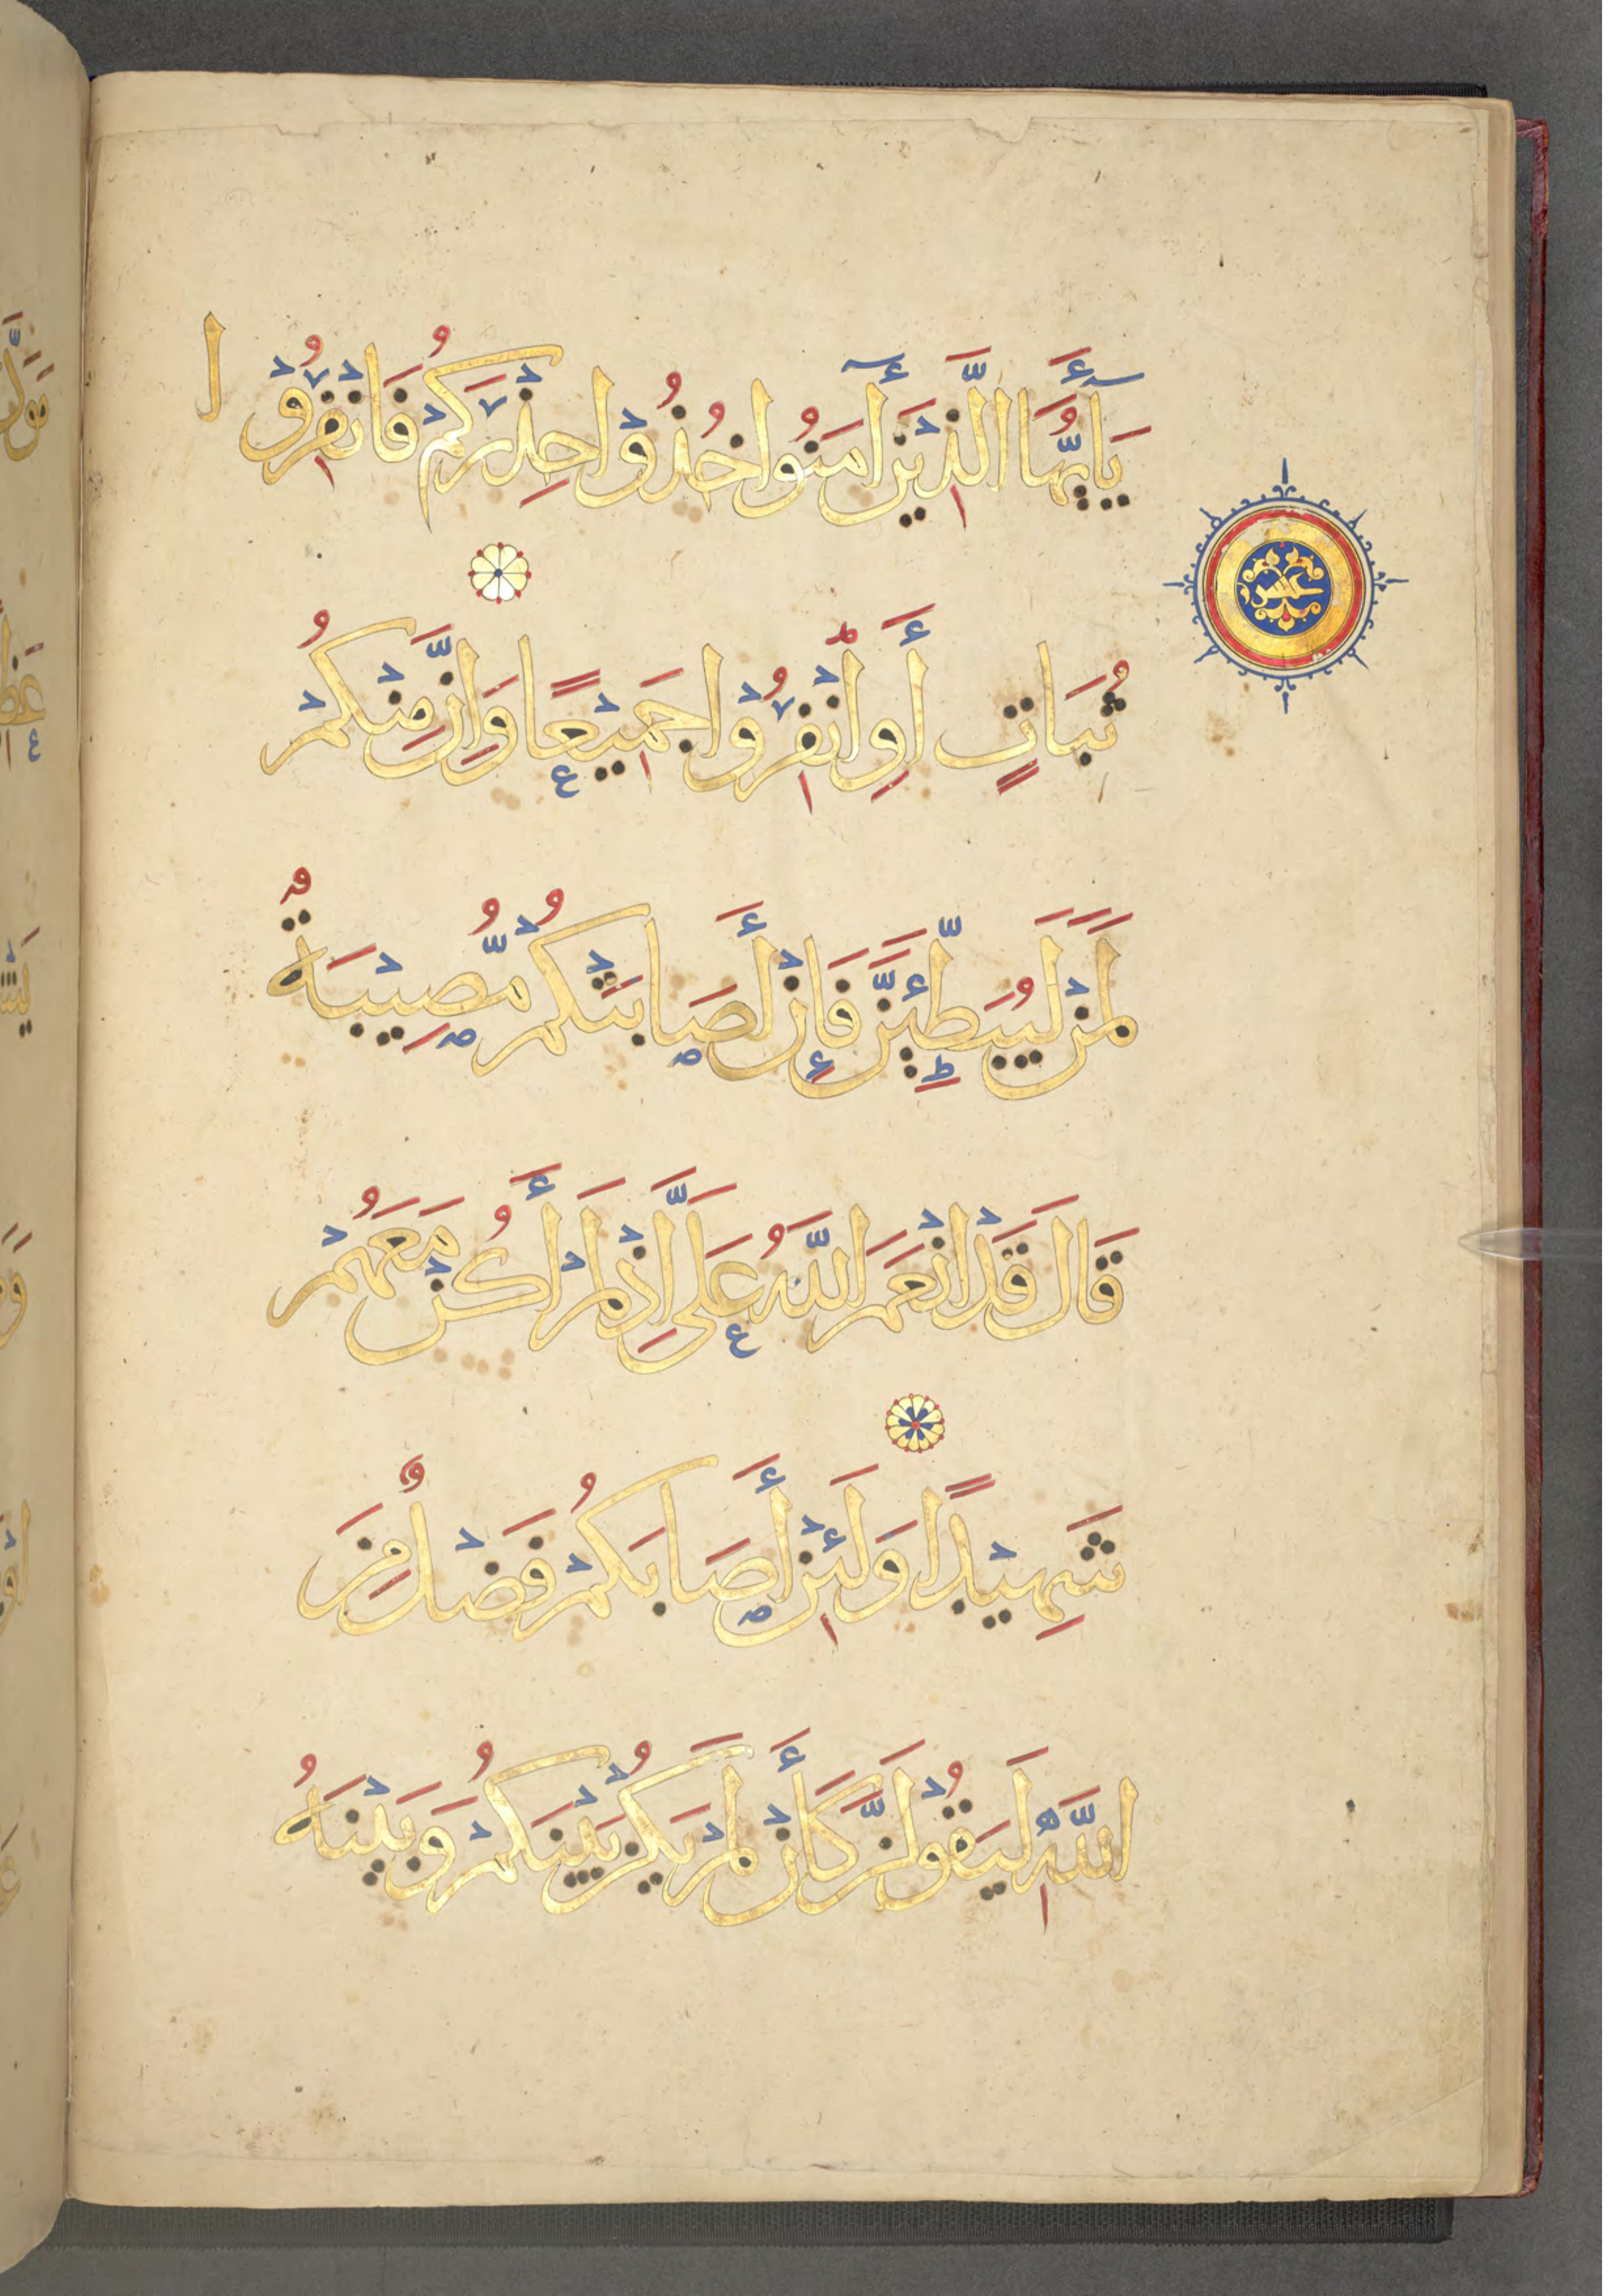 يَا أَيُّهَا الَّذِينَ آمَنُوا خُذُوا حِذْرَكُمْ فَانْفِرُوا
ثُبَاتٍ أَوِ انْفِرُوا جَمِيعًا وَإِنَّ مِنْكُمْ
لَمَنْ لَيُبَطِّئَنَّ فَإِنْ أَصَابَتْكُمْ مُّصِيبَةٌ
قَالَ قَدْ أَنْعَمَ اللَّهُ عَلَيَّ إِذْ لَمْ أَكُنْ مَعَهُمْ
شَهِيدًا وَلَئِنْ أَصَابَكُمْ فَضْلٌ مِنَ
اللَّهِ لَيَقُولَنَّ كَأَنْ لَمْ يَكُنْ بَيْنَكُمْ وَبَيْنَهُ